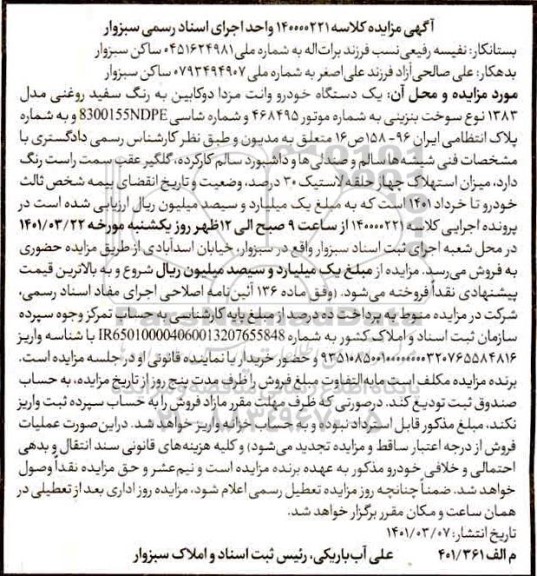 آگهی مزایده کلاسه ۱۴۰۰۰۰۲۲۱ واحد اجرای اسناد رسمی سبزوار
بستانکار: نفیسه رفیعی نسب فرزند برات‌اله به شماره ملی ۰۴۵۱۶۲۴۹۸۱ ساکن سبزوار
بدهکار: علی صالحی آزاد فرزند علی اصغر به شماره ملی ۰۷۹۳۴۹۴۹۰۷ ساکن سبزوار
مورد مزایده و محل آن: یک دستگاه خودرو وانت مزدا دوکابین به رنگ سفید روغنی مدل
۱۳۸۳ نوع سوخت بنزینی به شماره موتور ۴۶۸۴۹۵ و شماره شاسی 8300155NDPE و به شماره
پلاک انتظامی ایران ۹۶- ۱۵۸ص۱۶ متعلق به مدیون و طبق نظر کارشناس رسمی دادگستری با
مشخصات فنی شیشه‌ها سالم و صندلی‌ها و داشبورد سالم کارکرده، گلگیر عقب سمت راست رنگ
دارد، میزان استهلاک چهار حلقه لاستیک ۳۰ درصد، وضعیت و تاریخ انقضای بیمه شخص ثالث
خودرو تا خرداد ۱۴۰۱ است که به مبلغ یک میلیارد و سیصد میلیون ریال ارزیابی شده است در
پرونده اجرایی کلاسه ۱۴۰۰۰۰۲۲۱ از ساعت ۹ صبح الی ۱۲ ظهر روز یکشنبه مورخه ۱۴۰۱/۰۳/۲۲
در محل شعبه اجرای ثبت اسناد سبزوار واقع در سبزوار، خیابان اسدآبادی از طریق مزایده حضوری
به فروش می‌رسد. مزایده از مبلغ یک میلیارد و سیصد میلیون ریال شروع و به بالاترین قیمت
پیشنهادی نقداً فروخته می‌شود. (وفق ماده ۱۳۶ آئین‌نامه اصلاحی اجرای مفاد اسناد رسمی،
شرکت در مزایده منوط به پرداخت ده درصد از مبلغ پایه کارشناسی به حساب تمرکز وجوه سپرده
سازمان ثبت اسناد و املاک کشور به شماره IR650100004060013207655848 با شناسه واریز
و حضور خریدار یا نماینده قانونی او در جلسه مزایده است.
برنده مزایده مکلف است مابه‌التفاوت مبلغ فروش را ظرف مدت پنج روز از تاریخ مزایده، به حساب
صندوق ثبت تودیع کند. درصورتی که ظرف مهلت مقرر مازاد فروش را به حساب سپرده ثبت واریز
نکند، مبلغ مذکور قابل استرداد نبوده و به حساب خزانه واریز خواهد شد. دراین‌صورت عملیات
فروش از درجه اعتبار ساقط و مزایده تجدید می‌شود) و کلیه هزینه‌های قانونی سند انتقال و بدهی
احتمالی و خلافی خودرو مذکور به عهده برنده مزایده است و نیم عشر و حق مزایده نقداً وصول
خواهد شد. ضمناً چنانچه روز مزایده تعطیل رسمی اعلام شود، مزایده روز اداری بعد از تعطیلی در
همان ساعت و مکان مقرر برگزار خواهد شد.
تاریخ انتشار: ۱۴۰۱/۰۳/۰۷
م الف ۴۰۱/۳۶۱ علی آب‌باریکی، رئیس ثبت اسناد و املاک سبزوار